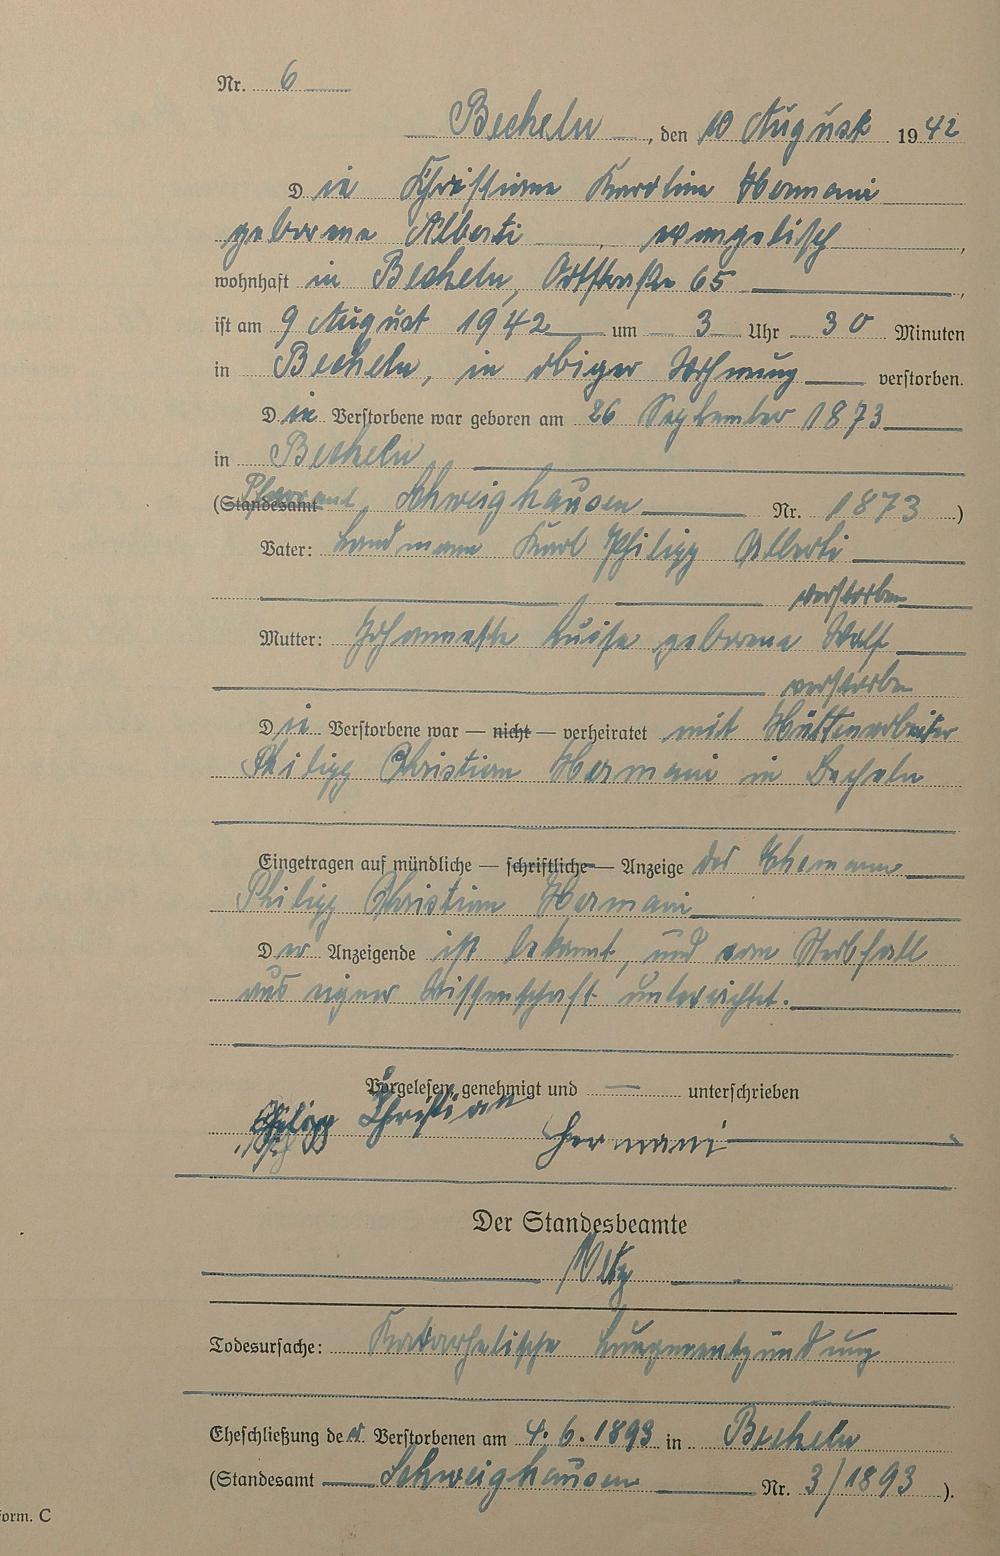 Nr. 6
Becheln, den 10 August 1942
Die Christiane Karoline Hermani
geborene Alberti, evangelisch,
wohnhaft in Becheln, Ortstraße 65,
ist am 9 August 1942 um 3 Uhr 30 Minuten
in Becheln, in obiger Wohnung verstorben.
Die Verstorbene war geboren am 26 September 1873
in Becheln
(Standesamt Pfarramt, Schweighausen Nr. 1873)
Vater: Landmann Karl Philipp Alberti
verstorben
Mutter: Johannette Luise geborene Wolf
verstorben
Die Verstorbene war — nicht — verheiratet mit Hüttenarbeiter
Philipp Christian Hermani in Becheln
Eingetragen auf mündliche — schriftliche — Anzeige des Ehemann
Philipp Christian Hermani
Der Anzeigende ist bekannt, und vom Sterbfall
aus eigner Wissenschaft unterrichtet.
Vorgelesen, genehmigt und — unterschrieben
Philipp Christian
Hermani
Der Standesbeamte
Todesursache: Katarhelische Lungenentzündung
Eheschließung der Verstorbenen am 4.6.1893 in Becheln
(Standesamt Schweighausen Nr. 3/1893).
Form. C